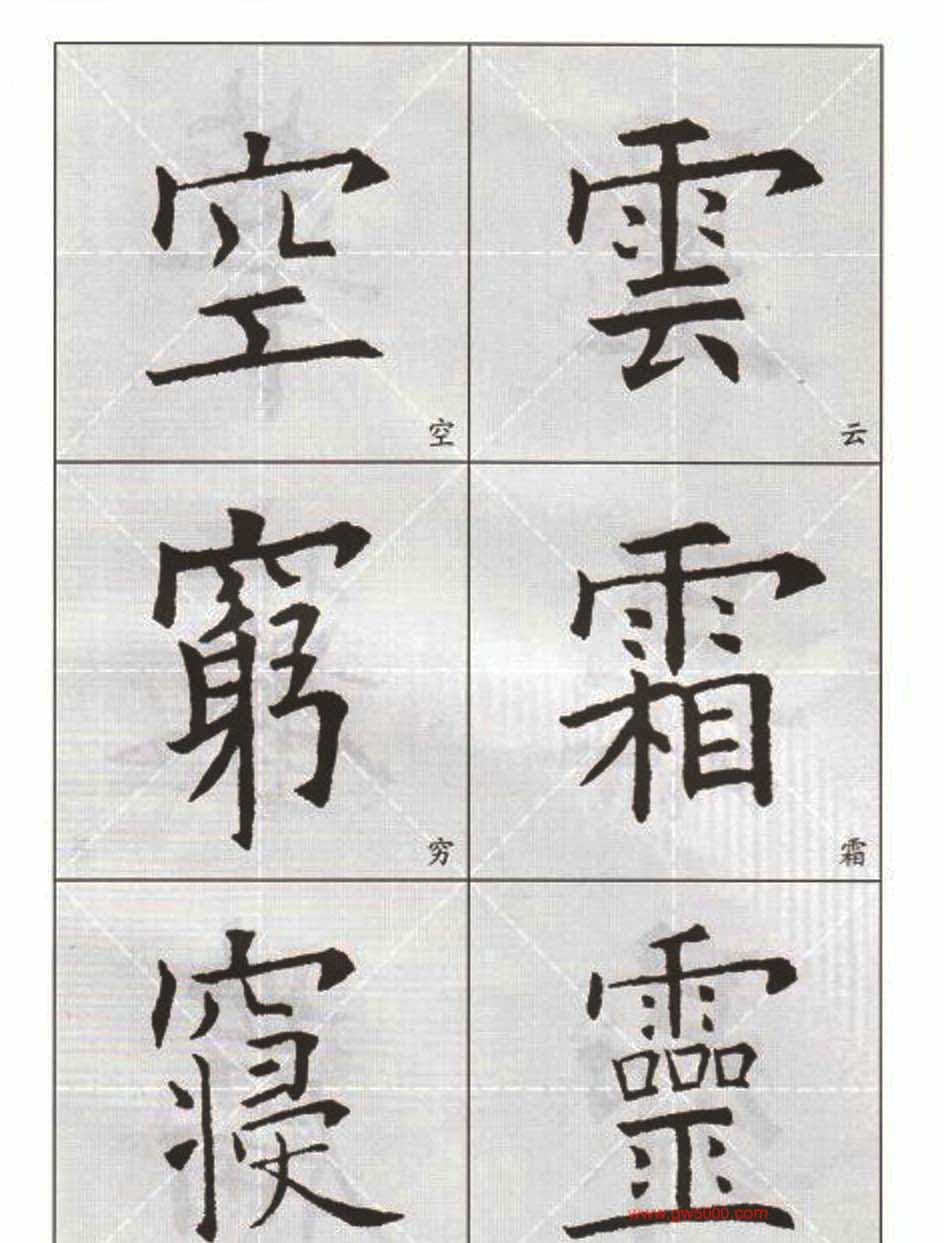 空 雲
空 云
窮 霜
穷 霜
寝 靈
www.gws000.com